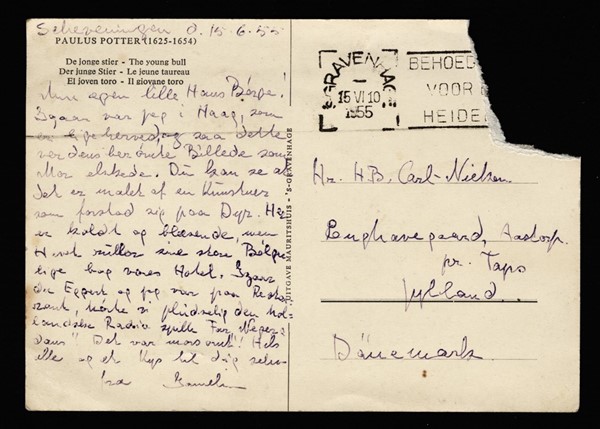 Scheveningen d. 15-6-55
PAULUS POTTER (1625-1654)
De jonge stier - The young bull
Der junge Stier - Le jeune taureau
El joven toro - Il giovane toro
Min egen lille Hans Børge!
Igaar var jeg i Haag, som
er lige herved, og saa dette
verdensberömte Billede som
Mor elskede. Du kan se at
det er malet af en Kunstner
som forstod sig paa Dyr. Her
er koldt og blæsende, men
Havet ruller sine store Bølger
lige bag vores Hotel. Igaar
da Eggert og jeg var paa Restau
rant, hørte vi pludselig den hol-
landske Radio spille Far's
Dans" Det var morsomt! Hils
alle og et Kys til dig selv
fra
UITGAVE MAURITSHUIS - 'S-GRAVENHAGE
'S GRAVENHAGE
15 VI 10
1955
BEHOED
VOOR
HEIDE
Hr. H.B. Carl-Nielsen
Enghavegaard, Aastorp
pr. Taps
Jylland.
Dänemark